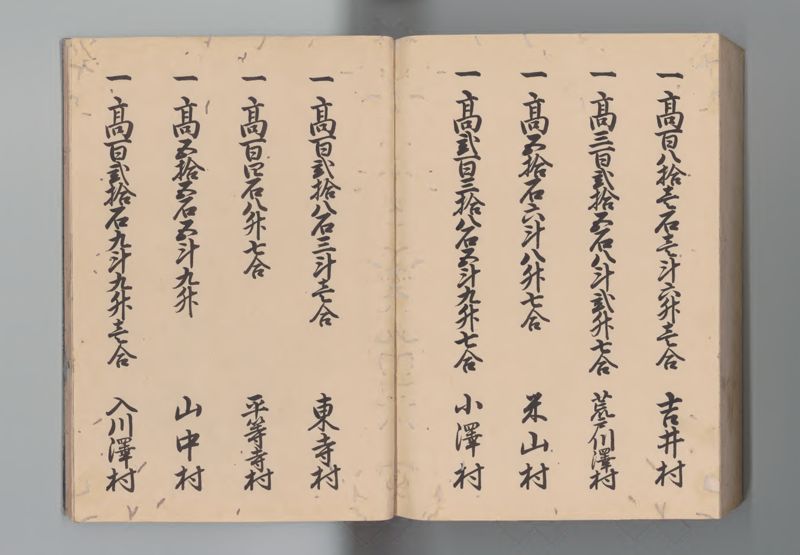 一 高百八拾壱石壱斗六升壱合 吉井村
一 高三百弐拾五石八斗弐升七合 荒戸川澤村
一 高五拾石六斗八升七合 米山村
一 高弐百三拾八石五斗九升七合 小澤村
一 高百弐拾八石三斗壱合 東寺村
一 高百四石八升七合 平等寺村
一 高五拾五石五斗九升 山中村
一 高百弐拾石九斗九升壱合 入川澤村